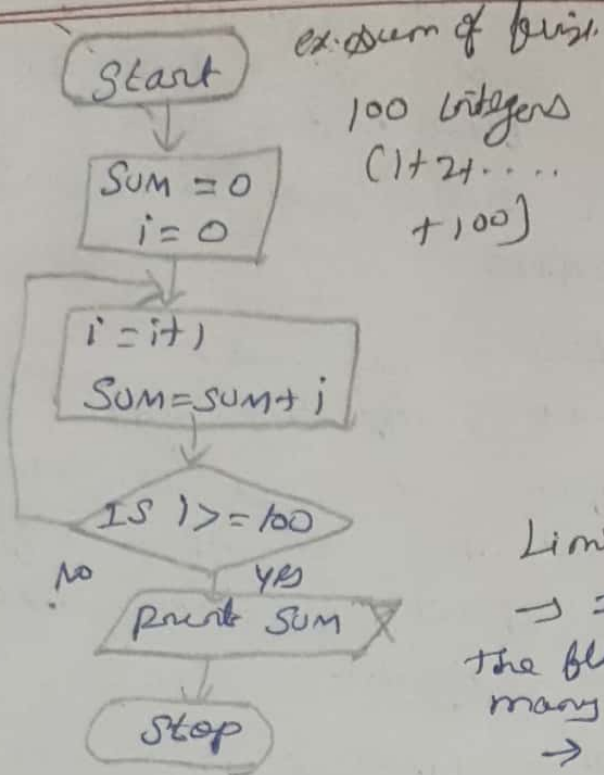 Start
SUM = 0
i = 0
i = i+1
SUM = SUM + i
IS i >= 100
NO
yes
print SUM
Stop
ex: sum of
100 integers
(1+2+.....
+100)
Lim
→
the
many
→